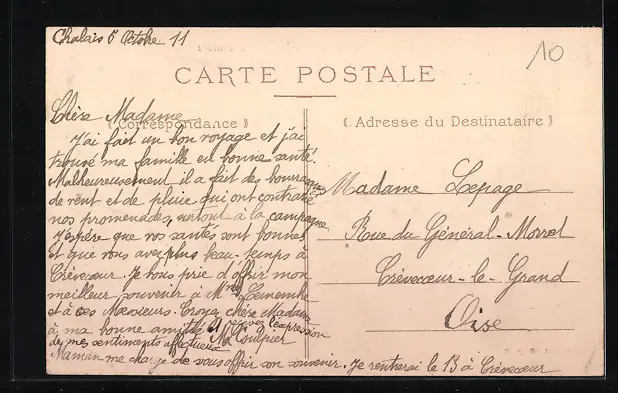 Chalais 6 Octobre 11
10
CARTE POSTALE
(Correspondance)
(Adresse du Destinataire)
Chère Madame
J'ai fait un bon voyage et j'ai
trouvé ma famille en bonne santé.
Malheureusement il a fait des bourrasques
de vent et de pluie qui ont contrarié
nos promenades, surtout à la campagne.
J'espère que vos santés sont bonnes
et que vous avez plus beau-temps à
Crèvecœur. Je vous prie d'offrir mon
meilleur souvenir à Mme
et à ces Messieurs. Croyez chère Madame
à ma bonne amitié et recevez l'expression
de mes sentiments affectueux
Maman me charge de vous offrir son souvenir. Je rentrerai le 13 à Crèvecœur
Madame Lepage
Rue du Général-Morel
Crèvecœur-le-Grand
Oise